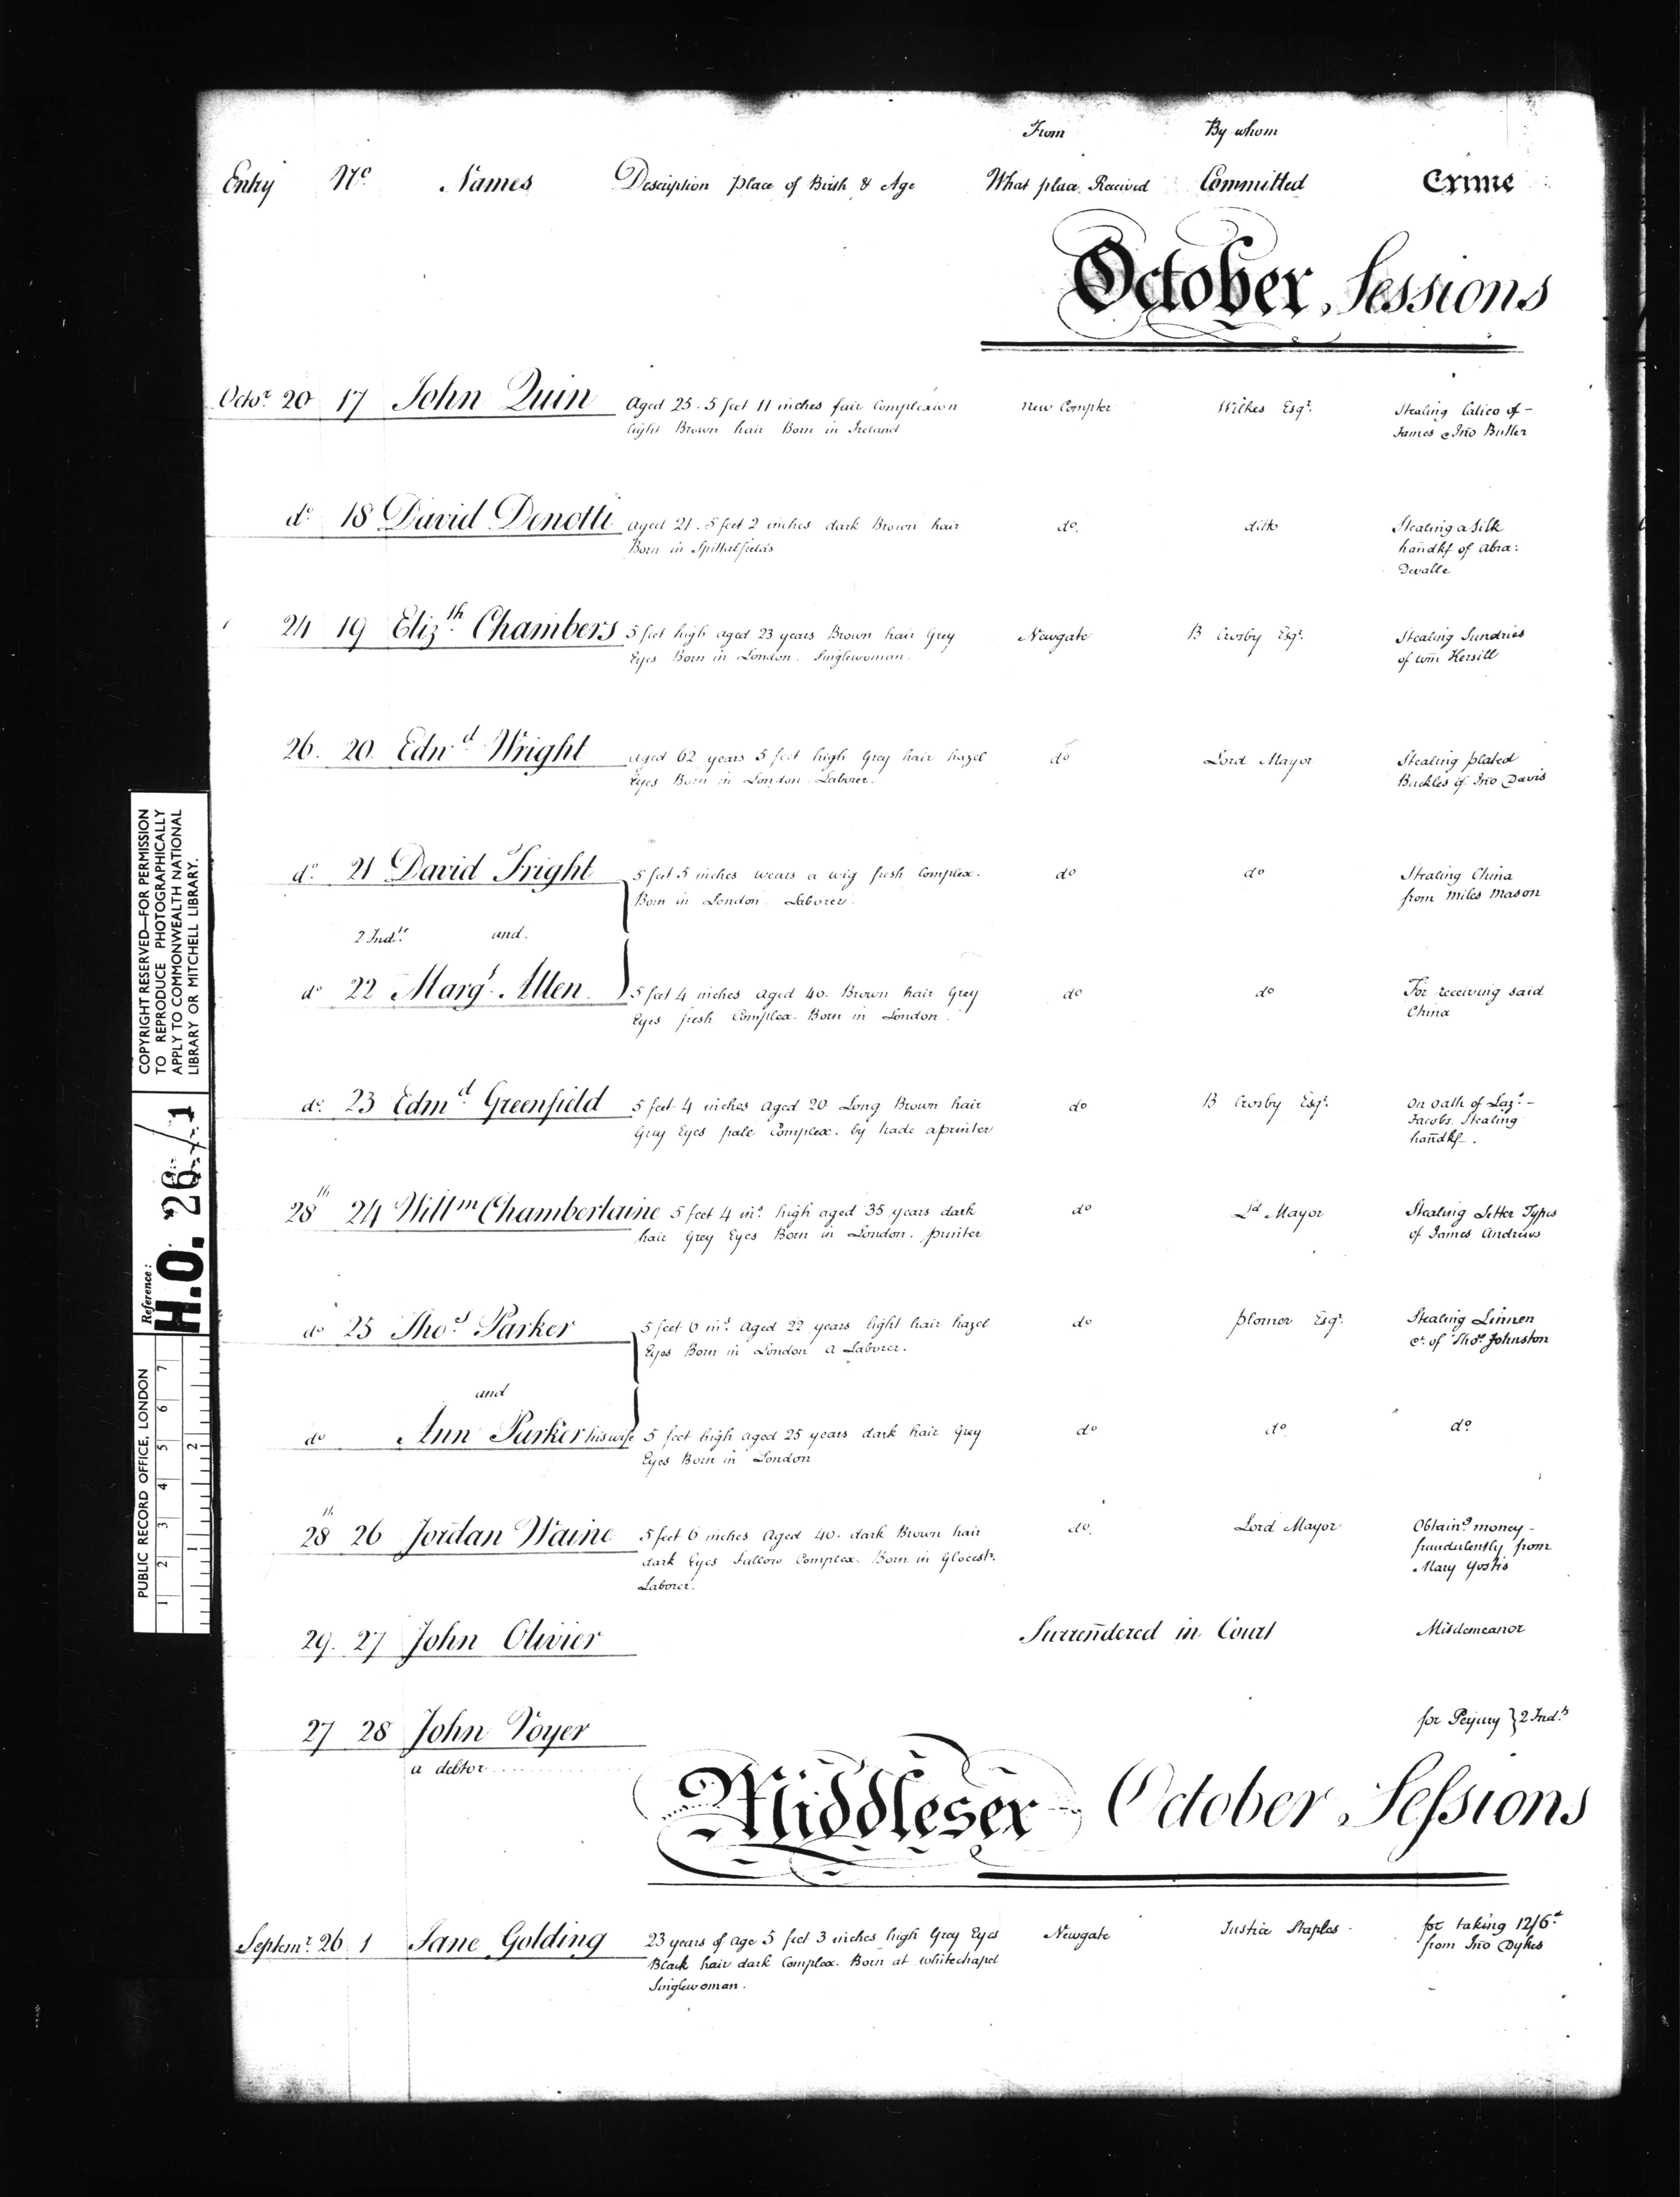 From By whom
Entry No Names Description place of Birth & Age What place Received Committed Crime
October Sessions
Octor 20 17 John Quin Aged 25. 5 feet 11 inches fair Complexion New Compter Wilkes Esqr. Stealing Calico of -
light Brown hair Born in Ireland James & Jno Butler
do 18 David Denotti aged 21. 5 feet 2 inches dark Brown hair do. ditto Stealing a Silk
Born in Spittalfields handkf of Abra:
Devalle
24 19 Elizth Chambers 5 feet high aged 23 years Brown hair Grey Newgate B Crosby Esqr. Stealing Sundries
Eyes Born in London. Singlewoman. of Wm Hersill
26. 20. Edwd Wright aged 62 years 5 feet high Grey hair hazel do Lord Mayor Stealing plated
Eyes Born in London Laborer. Buckles of Jno Davis
do 21 David Fright 5 feet 5 inches wears a wig fresh Complex. do do Stealing China
Born in London. Laborer. from Miles Mason
2 Indts and.
do 22 Margt Allen. 5 feet 4 inches aged 40. Brown hair Grey do do For receiving said
Eyes fresh Complex. Born in London. China
do 23 Edmd Greenfield 5 feet 4 inches aged 20 Long Brown hair do B Crosby Esqr. On oath of Lazs. -
Grey Eyes pale Complex. by trade a printer Jacobs. Stealing
handkf.
28th 24 Willm Chamberlaine 5 feet 4 ins high aged 35 years dark do Ld Mayor Stealing Letter Types
hair Grey Eyes Born in London. printer of James Andrews
do 25 Thos Parker 5 feet 6 ins Aged 22 years light hair hazel do plomer Esqr. Stealing Linnen
Eyes Born in London a Laborer. &c. of Thos Johnston
and
do Ann Parker his wife 5 feet high aged 25 years dark hair Grey do do do
Eyes Born in London
28th 26 Jordan Waine 5 feet 6 inches Aged 40. dark Brown hair do. Lord Mayor Obtaing money -
dark Eyes Sallow Complex. Born in Glocestr. fraudulently from
Laborer. Mary
29. 27 John Olivier Surrendered in Court Misdemeanor
27 28 John Voyer for Perjury } 2 Indts
a debtor
Middlesex October Sessions
Septemr 26 1 Jane Golding 23 years of age 5 feet 3 inches high Grey Eyes Newgate Justice Staples - for taking 12/6d
Black hair dark Complex. Born at Whitechapel from Jno Dykes
Singlewoman.
COPYRIGHT RESERVED—FOR PERMISSION
TO REPRODUCE PHOTOGRAPHICALLY
APPLY TO COMMONWEALTH NATIONAL
LIBRARY OR MITCHELL LIBRARY.
Reference:
H.O. 26/1
PUBLIC RECORD OFFICE, LONDON
1 2 3 4 5 6 7
1 2